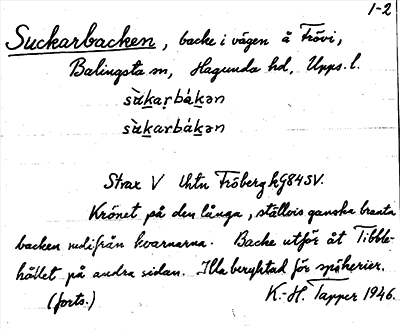 1-2
Suckarbacken, backe i vägen å Frövi,
Balingsta sn, Hagunda hd, Upps. l.
sùkarbákən
sùkarbákən
Strax V lhtn Fröberg kG845V.
Krönet på den långa, ställvis ganska branta
backen nedifrån kvarnarna. Backe utför åt Tibble-
hållet på andra sidan. Illa beryktad för spökerier.
(forts.) K.-H. Tapper 1946.